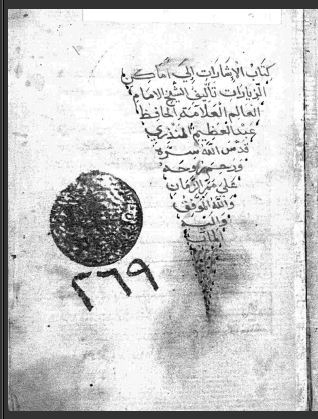 كتاب الإشارات إلى أماكن
الزيارات تأليف الشيخ الإمام
العالم العلامة الحافظ
عبد العظيم المنذري
قدس الله سره
ورحم روحه
على ممر الزمان
والله الموفق
٢٦٩